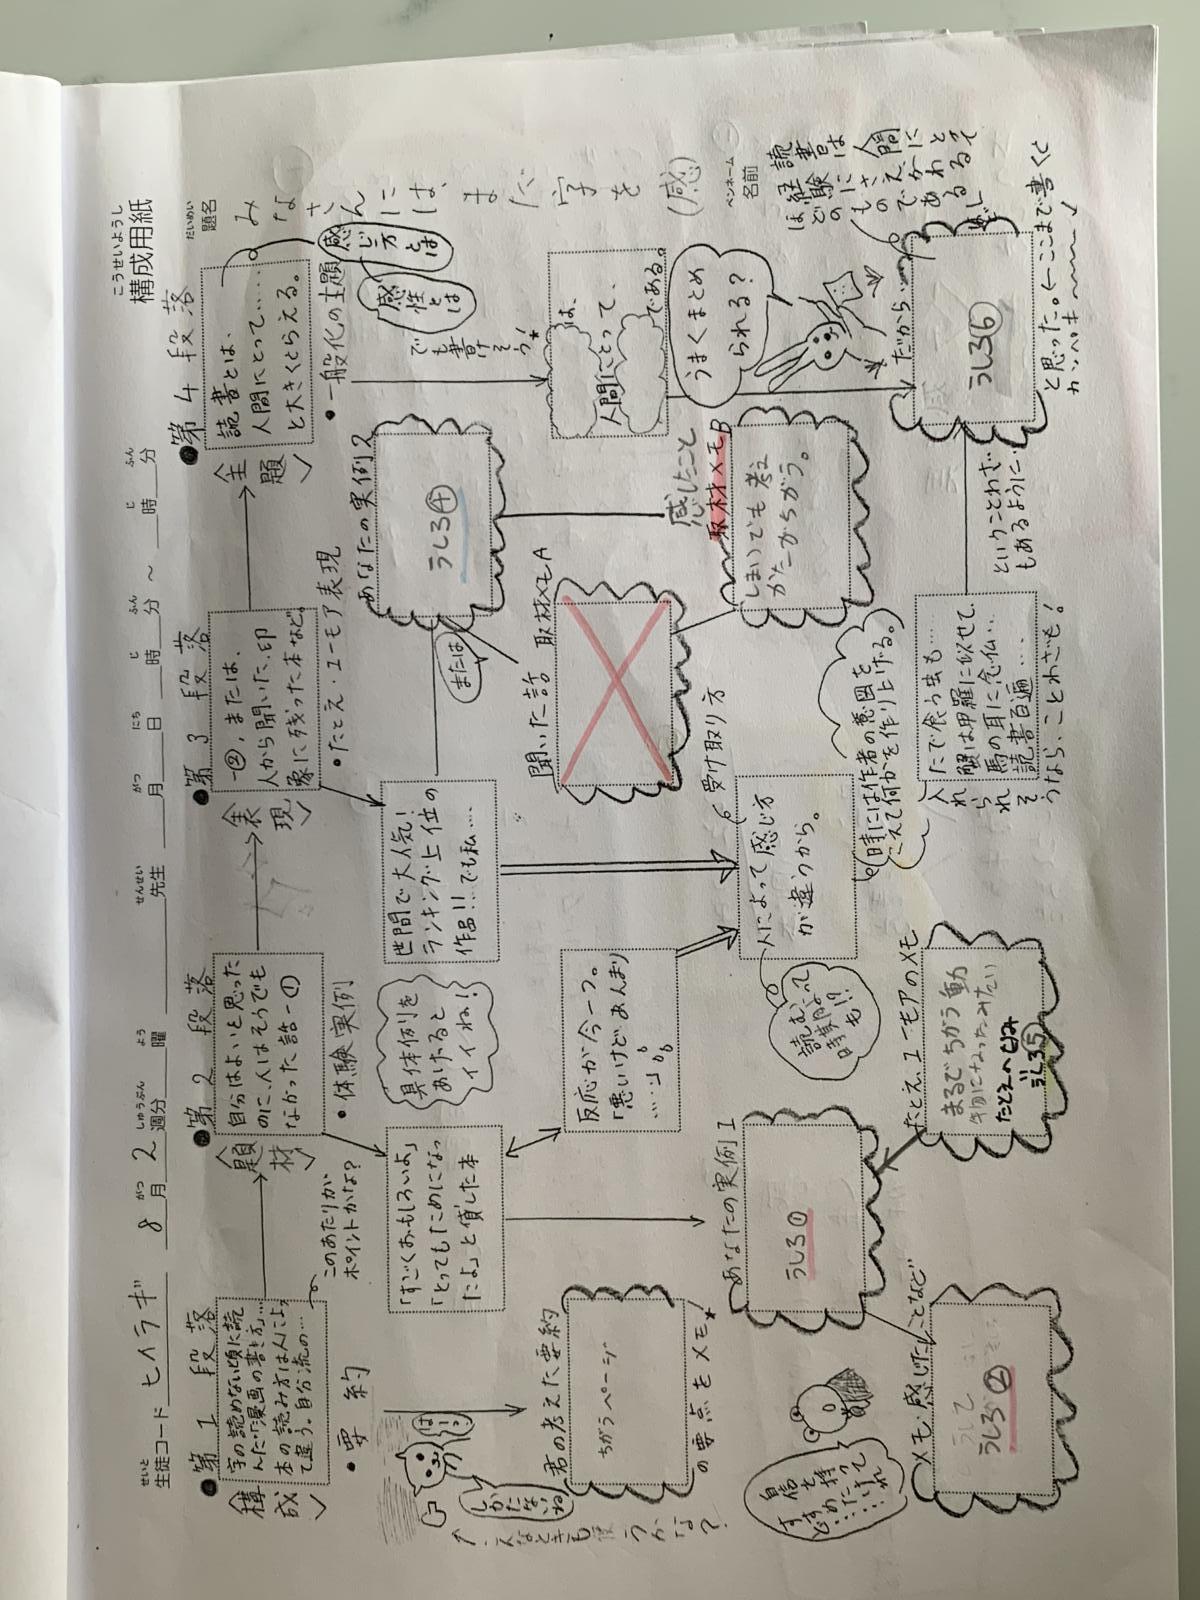 こうせいようし
構成用紙
生徒コード ヒイラギ 8月2週分 曜 先生 月 日 時 分 ~ 時 分
せいと がつ しゅうぶん よう せんせい がつ にち じ ふん じ ふん
だいめい
題名
みなさんには、まだ字を(感)
ペンネーム
名前
●第1段落
〈構成〉
字の読めない頃に読
んだ「漫画の書き方」…
本の読み方は人によっ
て違う。自分流の…
このあたりが
ポイントかな?
・要約
はーい
しかたないね
君の考えた要約
ちがうページ
の要点をメモ★
●第2段落
〈題材〉
自分はよいと思った
のに、人はそうでも
なかった話-①
・体験実例
具体例を
あげると
イイね!
「すごくおもしろいよ」
「とってもためになっ
たよ」と貸した本
反応が今一つ。
「悪いけどあんまり
……」
あなたの実例1
うしろ①
メモ・感じたことなど
うしろ②
自信を持
ってすすめた
たとえ、ユーモアのメモ
まるでちがう動
物になったみたい
たとえへなみ
うしろ⑤
●第3段落
〈表現〉
-②、または、
人から聞いた、印
象に残った本など。
・たとえ・ユーモア表現
世間で大人気!
ランキング上位の
作品!!…でも私…
または
あなたの実例2
うしろ④
聞いた話
取材メモA
感じたこと
取材メモB
しまいでも考え
かたがちがう。
人によって感じ方
が違うから。
受け取り方
読む
時期によって
も!?
時には作者の意図を
こえて何かを作り上げる。
たで食う虫も…
蟹は甲羅に似せて
馬の耳に念仏…
読書百遍……
入れられそ
うなら、ことわざも!
ということわざ
もあるように
●第4段落
〈主題〉
読書とは、
人間にとって……
と大きくとらえる。
・一般化の主題
感じ方とは
感性とは
でも書けそう!★
は、
人間にとって、
である。
うまくまとめ
られる?
だから…
うしろ⑥
読書は人間にとって
と思った。←ここまで書くと
カンペキ